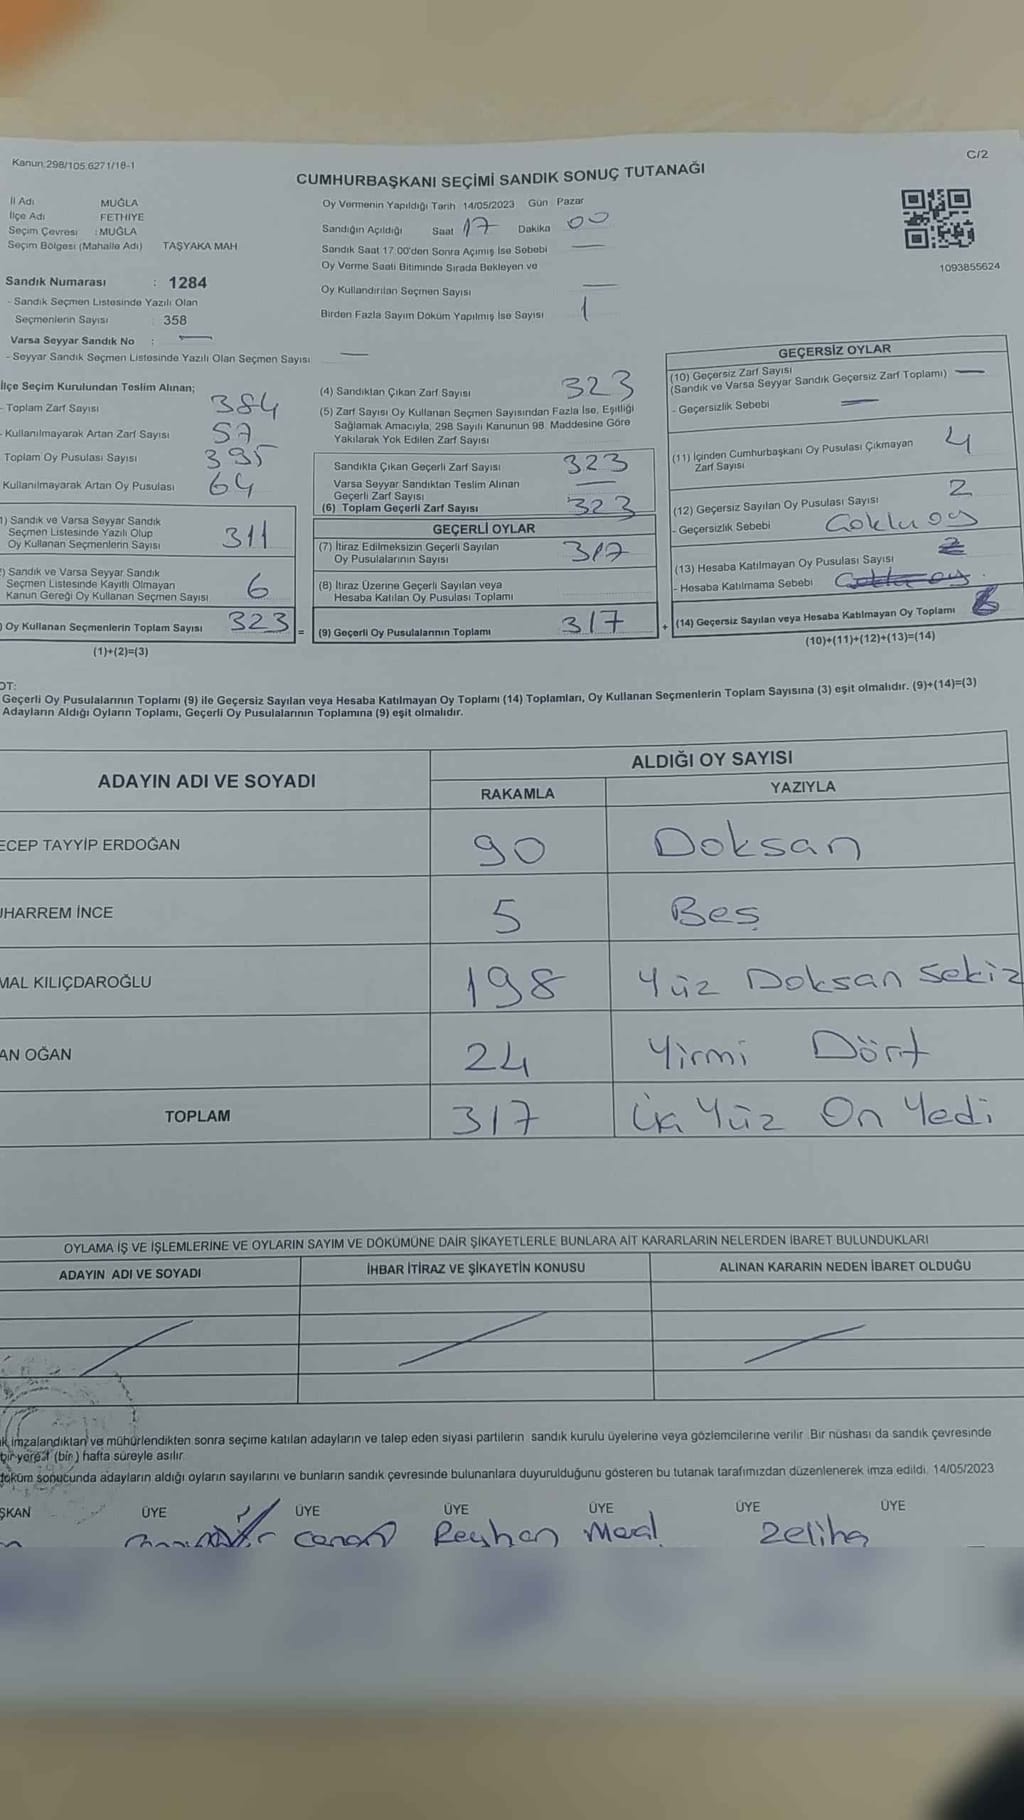 Kanun 298/105 6271/18-1
C/2
CUMHURBAŞKANI SEÇİMİ SANDIK SONUÇ TUTANAĞI
İl Adı MUĞLA
İlçe Adı FETHİYE
Seçim Çevresi : MUĞLA
Seçim Bölgesi (Mahalle Adı) TAŞYAKA MAH
Sandık Numarası : 1284
- Sandık Seçmen Listesinde Yazılı Olan
Seçmenlerin Sayısı 358
Varsa Seyyar Sandık No : —
- Seyyar Sandık Seçmen Listesinde Yazılı Olan Seçmen Sayısı —
Oy Vermenin Yapıldığı Tarih 14/05/2023 Gün Pazar
Sandığın Açıldığı Saat 17 Dakika 00
Sandık Saat 17:00'den Sonra Açımış İse Sebebi —
Oy Verme Saati Bitiminde Sırada Bekleyen ve
Oy Kullandırılan Seçmen Sayısı —
Birden Fazla Sayım Döküm Yapılmış İse Sayısı 1
1093855624
İlçe Seçim Kurulundan Teslim Alınan;
- Toplam Zarf Sayısı 384
- Kullanılmayarak Artan Zarf Sayısı 57
Toplam Oy Pusulası Sayısı 395
Kullanılmayarak Artan Oy Pusulası 64
1) Sandık ve Varsa Seyyar Sandık
Seçmen Listesinde Yazılı Olup
Oy Kullanan Seçmenlerin Sayısı 311
2) Sandık ve Varsa Seyyar Sandık
Seçmen Listesinde Kayıtlı Olmayan
Kanun Gereği Oy Kullanan Seçmen Sayısı 6
) Oy Kullanan Seçmenlerin Toplam Sayısı 323 =
(1)+(2)=(3)
(4) Sandıktan Çıkan Zarf Sayısı 323
(5) Zarf Sayısı Oy Kullanan Seçmen Sayısından Fazla İse, Eşitliği
Sağlamak Amacıyla, 298 Sayılı Kanunun 98. Maddesine Göre
Yakılarak Yok Edilen Zarf Sayısı
Sandıkta Çıkan Geçerli Zarf Sayısı 323
Varsa Seyyar Sandıktan Teslim Alınan
Geçerli Zarf Sayısı —
(6) Toplam Geçerli Zarf Sayısı 323
GEÇERLİ OYLAR
(7) İtiraz Edilmeksizin Geçerli Sayılan
Oy Pusulalarının Sayısı 317
(8) İtiraz Üzerine Geçerli Sayılan veya
Hesaba Katılan Oy Pusulası Toplamı
(9) Geçerli Oy Pusulalarının Toplamı 317 +
GEÇERSİZ OYLAR
(10) Geçersiz Zarf Sayısı
(Sandık ve Varsa Seyyar Sandık Geçersiz Zarf Toplamı) —
- Geçersizlik Sebebi —
(11) İçinden Cumhurbaşkanı Oy Pusulası Çıkmayan
Zarf Sayısı 4
(12) Geçersiz Sayılan Oy Pusulası Sayısı 2
- Geçersizlik Sebebi Çoklu oy
(13) Hesaba Katılmayan Oy Pusulası Sayısı 2
- Hesaba Katılmama Sebebi
(14) Geçersiz Sayılan veya Hesaba Katılmayan Oy Toplamı 6
(10)+(11)+(12)+(13)=(14)
OT:
Geçerli Oy Pusulalarının Toplamı (9) ile Geçersiz Sayılan veya Hesaba Katılmayan Oy Toplamı (14) Toplamları, Oy Kullanan Seçmenlerin Toplam Sayısına (3) eşit olmalıdır. (9)+(14)=(3)
Adayların Aldığı Oyların Toplamı, Geçerli Oy Pusulalarının Toplamına (9) eşit olmalıdır.
ADAYIN ADI VE SOYADI
ALDIĞI OY SAYISI
RAKAMLA YAZIYLA
ECEP TAYYİP ERDOĞAN 90 Doksan
UHARREM İNCE 5 Beş
MAL KILIÇDAROĞLU 198 Yüz Doksan Sekiz
AN OĞAN 24 Yirmi Dört
TOPLAM 317 Yüz On Yedi
OYLAMA İŞ VE İŞLEMLERİNE VE OYLARIN SAYIM VE DÖKÜMÜNE DAİR ŞİKAYETLERLE BUNLARA AİT KARARLARIN NELERDEN İBARET BULUNDUKLARI
ADAYIN ADI VE SOYADI İHBAR İTİRAZ VE ŞİKAYETİN KONUSU ALINAN KARARIN NEDEN İBARET OLDUĞU
k imzalandıktan ve mühürlendikten sonra seçime katılan adayların ve talep eden siyasi partilerin sandık kurulu üyelerine veya gözlemcilerine verilir. Bir nüshası da sandık çevresinde
bir yere 1 (bir) hafta süreyle asılır.
döküm sonucunda adayların aldığı oyların sayılarını ve bunların sandık çevresinde bulunanlara duyurulduğunu gösteren bu tutanak tarafımızdan düzenlenerek imza edildi. 14/05/2023
ŞKAN ÜYE ÜYE ÜYE ÜYE ÜYE ÜYE
Canan Reyhan Meal Zeliha